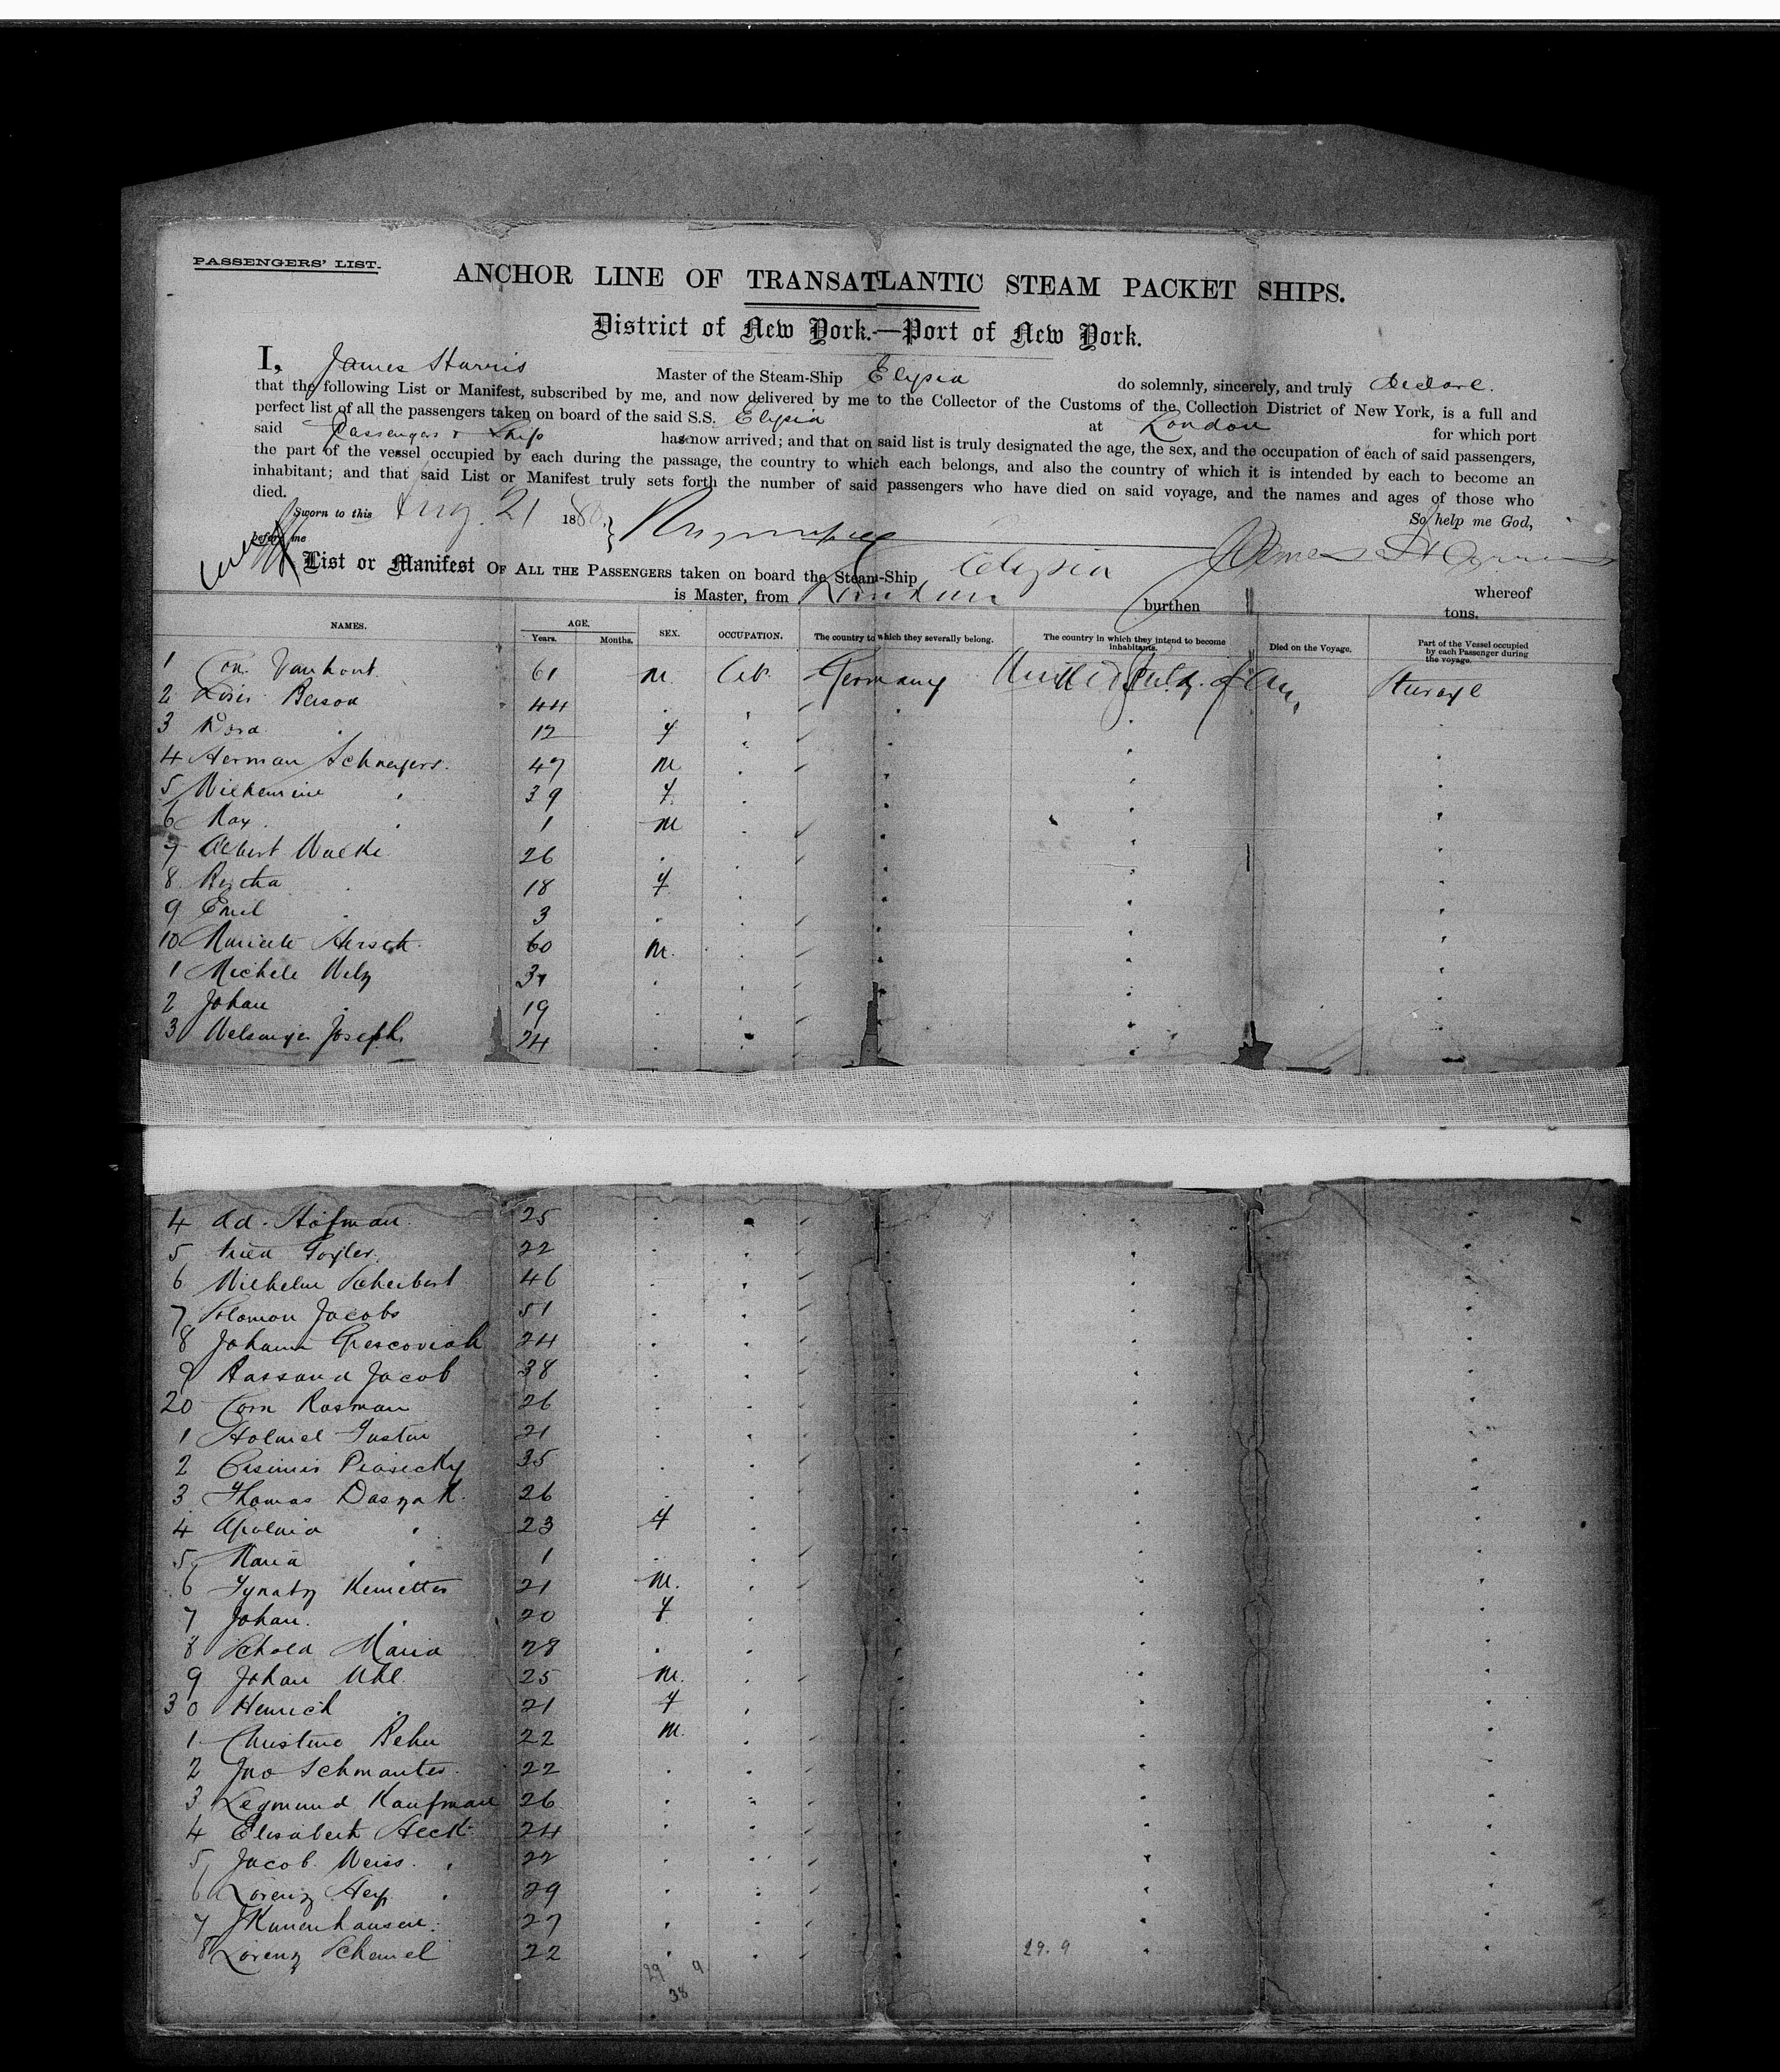 PASSENGERS' LIST.
ANCHOR LINE OF TRANSATLANTIC STEAM PACKET SHIPS.
District of New York.—Port of New York.
I, James Harris Master of the Steam-Ship Elysia do solemnly, sincerely, and truly declare.
that the following List or Manifest, subscribed by me, and now delivered by me to the Collector of the Customs of the Collection District of New York, is a full and
perfect list of all the passengers taken on board of the said S.S. Elysia at London for which port
said Passengers & Ship has now arrived; and that on said list is truly designated the age, the sex, and the occupation of each of said passengers,
the part of the vessel occupied by each during the passage, the country to which each belongs, and also the country of which it is intended by each to become an
inhabitant; and that said List or Manifest truly sets forth the number of said passengers who have died on said voyage, and the names and ages of those who
died. So help me God,
Sworn to this Aug. 21 1880
before me James Harris
List or Manifest OF ALL THE PASSENGERS taken on board the Steam-Ship Elysia whereof
is Master, from London burthen tons.
NAMES. AGE. SEX. OCCUPATION. The country to which they severally belong. The country in which they intend to become inhabitants. Died on the Voyage. Part of the Vessel occupied by each Passenger during the voyage.
Years. Months.
1 Con. Vanhout 61 M. Germany United Steerage
2 Berson 44
3 Dora 12 f
4 Herman 47 M
5 39 f
6 Max 1 M
7 Albert 26
8 18 f
9 Emil 3
10 60 M.
1 Michele Welz
2 Johan 19
3 Joseph 24
4 Ad. Hofman 25
5 22
6 Wilhelm Scheibert 46
7 Solomon Jacobs 51
8 Johann 24
9 Jacob 38
20 Corn Rosman 26
1 21
2 Casimir Piasecky 35
3 Thomas Daszak 26
4 Apolnia 23 f
5 Maria 1
6 21 M.
7 Johan 20 f
8 Maria 28
9 Johan Uhl 25 M.
30 Henrich 21 f
1 Christine 22 M.
2 Jno Schmanter 22
3 Kaufman 26
4 Elisabeth Heck 24
5 Jacob Weiss 22
6 Lorenz 29
7 27
8 Lorenz Schemel 22 29.9
29 9
38